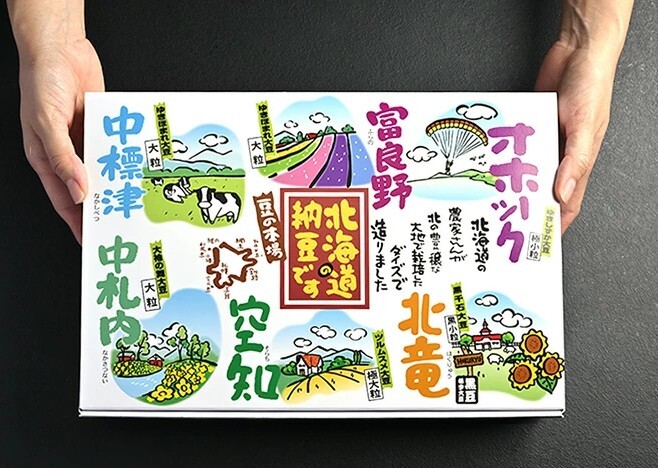 中標津
なかしべつ
ゆきほまれ大豆
大粒
ゆきほまれ大豆
大粒
富良野
ふらの
オホーツク
ゆきしずか大豆
極小粒
豆の本場
北海道の
納豆です
北海道の
農家さんが
北の豊穣な
大地で栽培した
ダイズで
造りました
中札内
なかさつない
大袖の舞大豆
大粒
空知
そらち
ツルムスメ大豆
極大粒
北竜
ほくりゅう
黒千石大豆
黒小粒
HOKURYU
黒豆